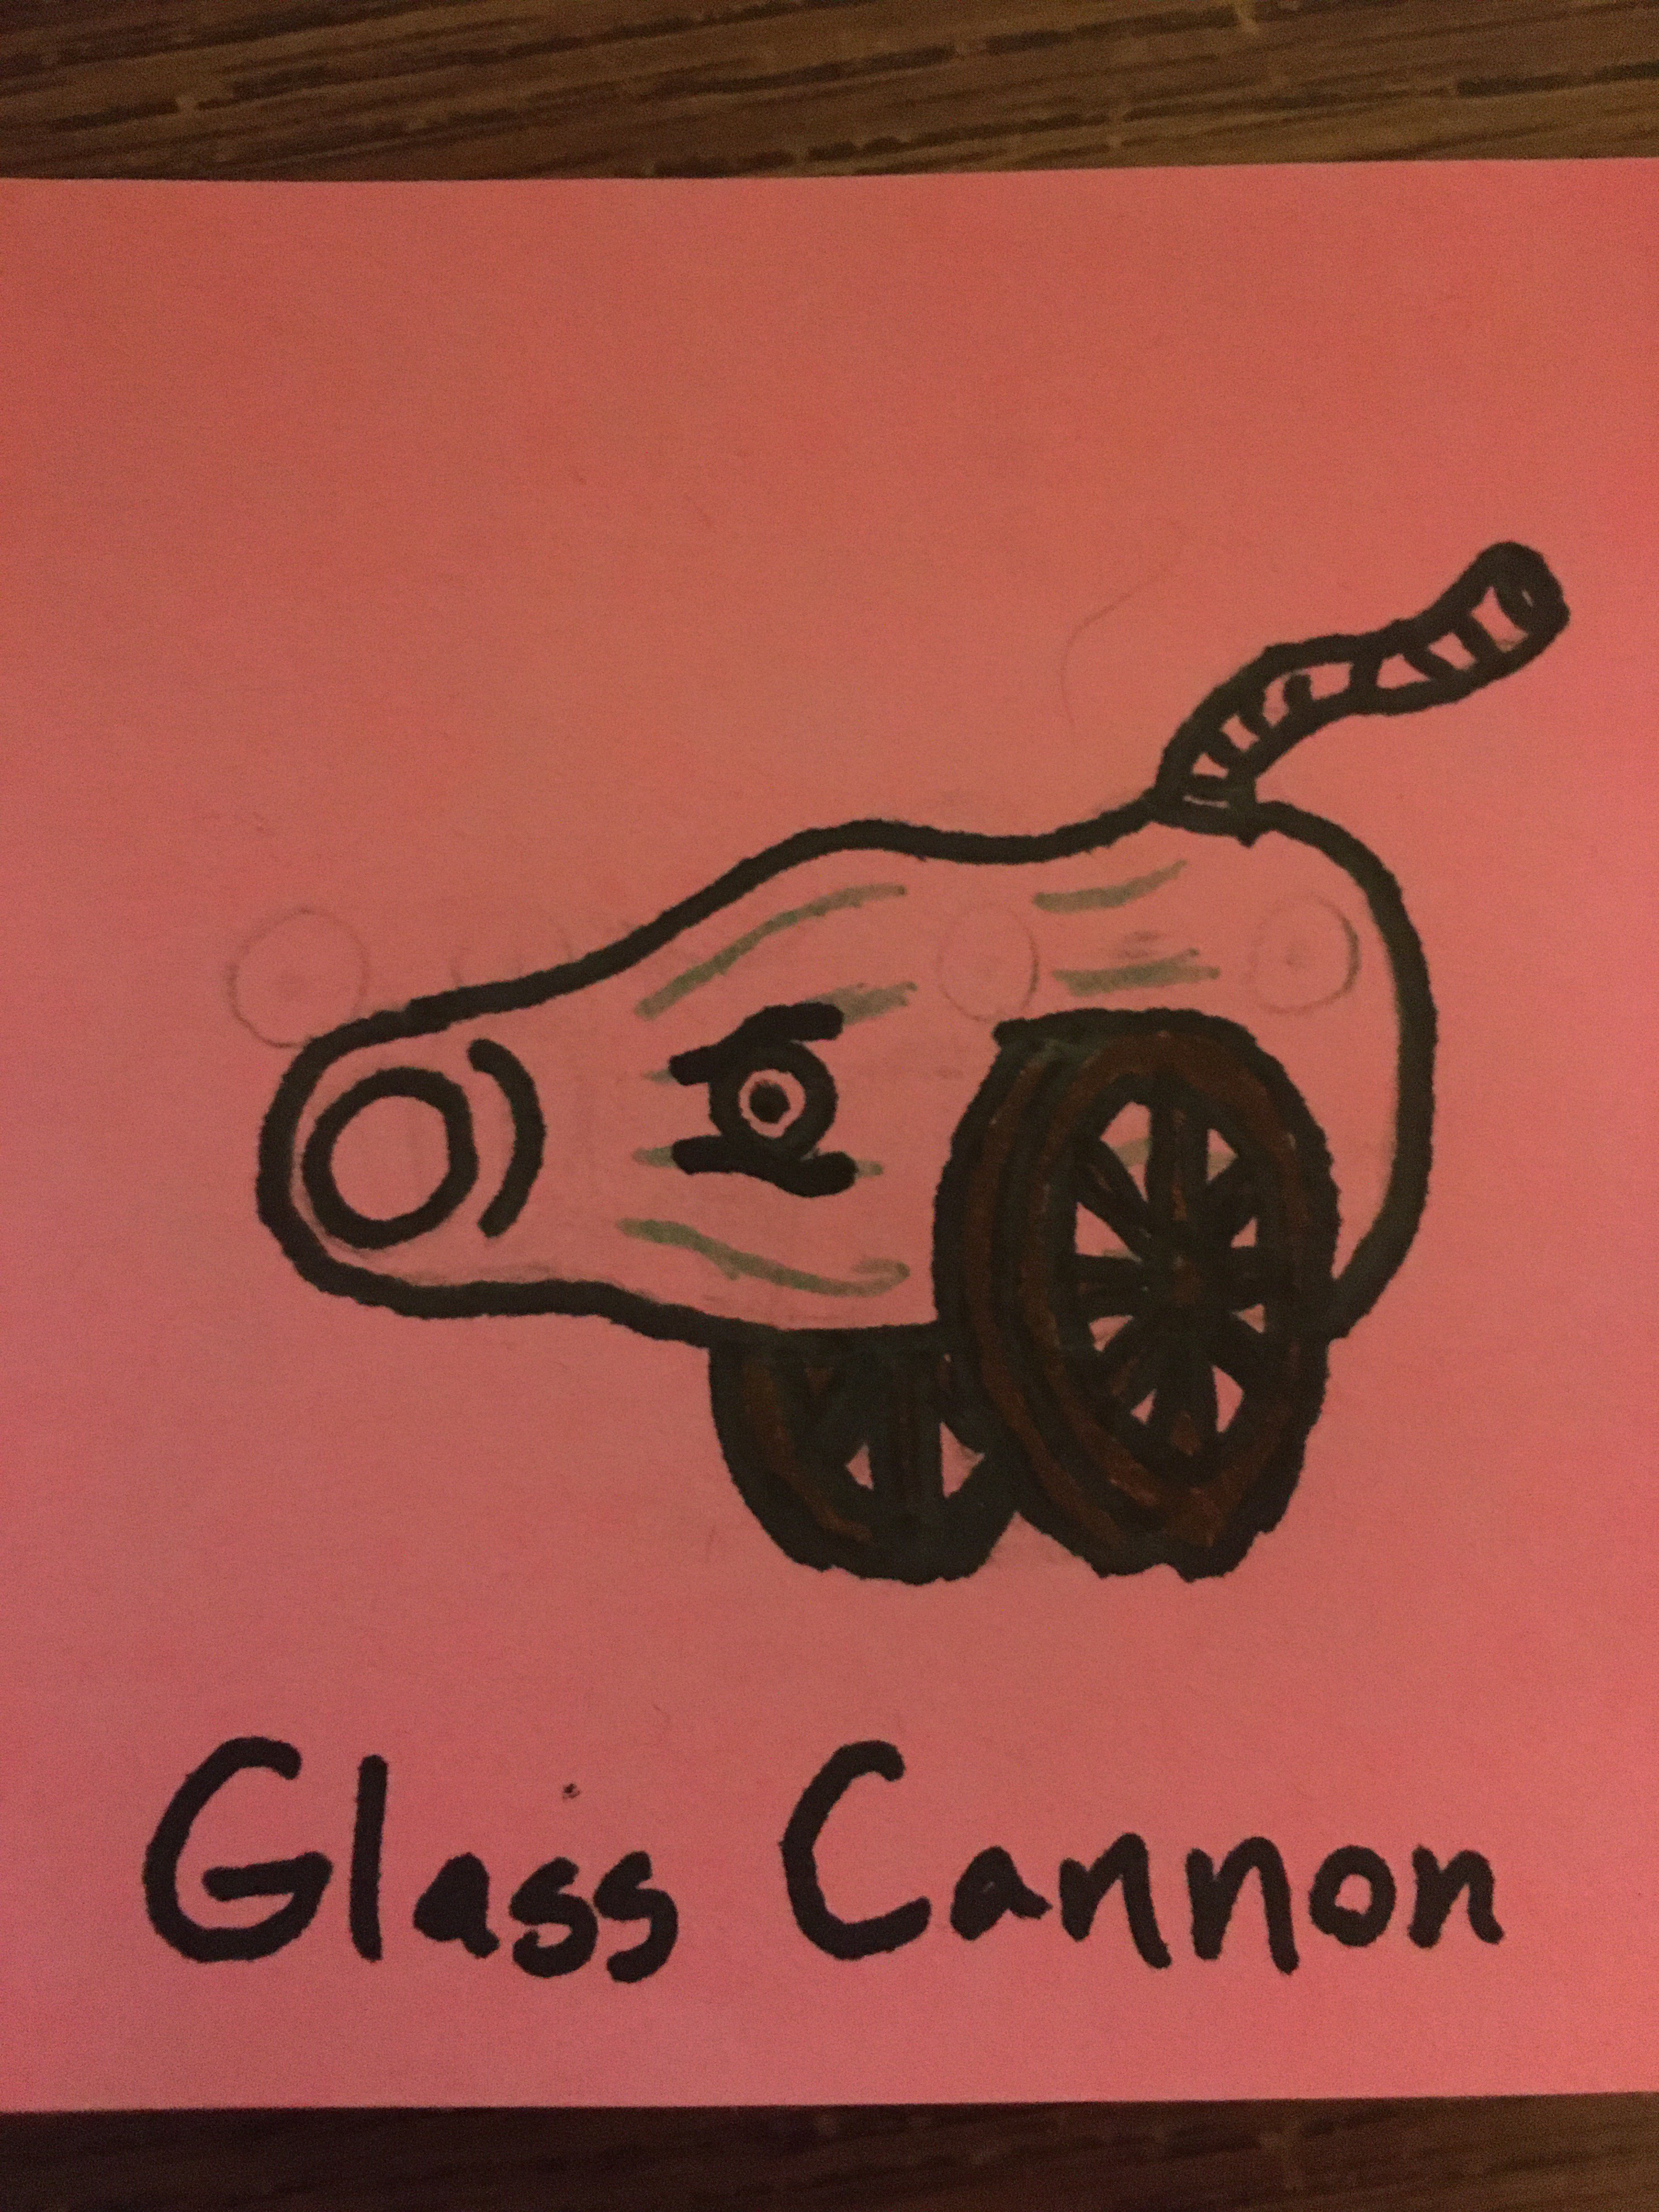 Glass Cannon